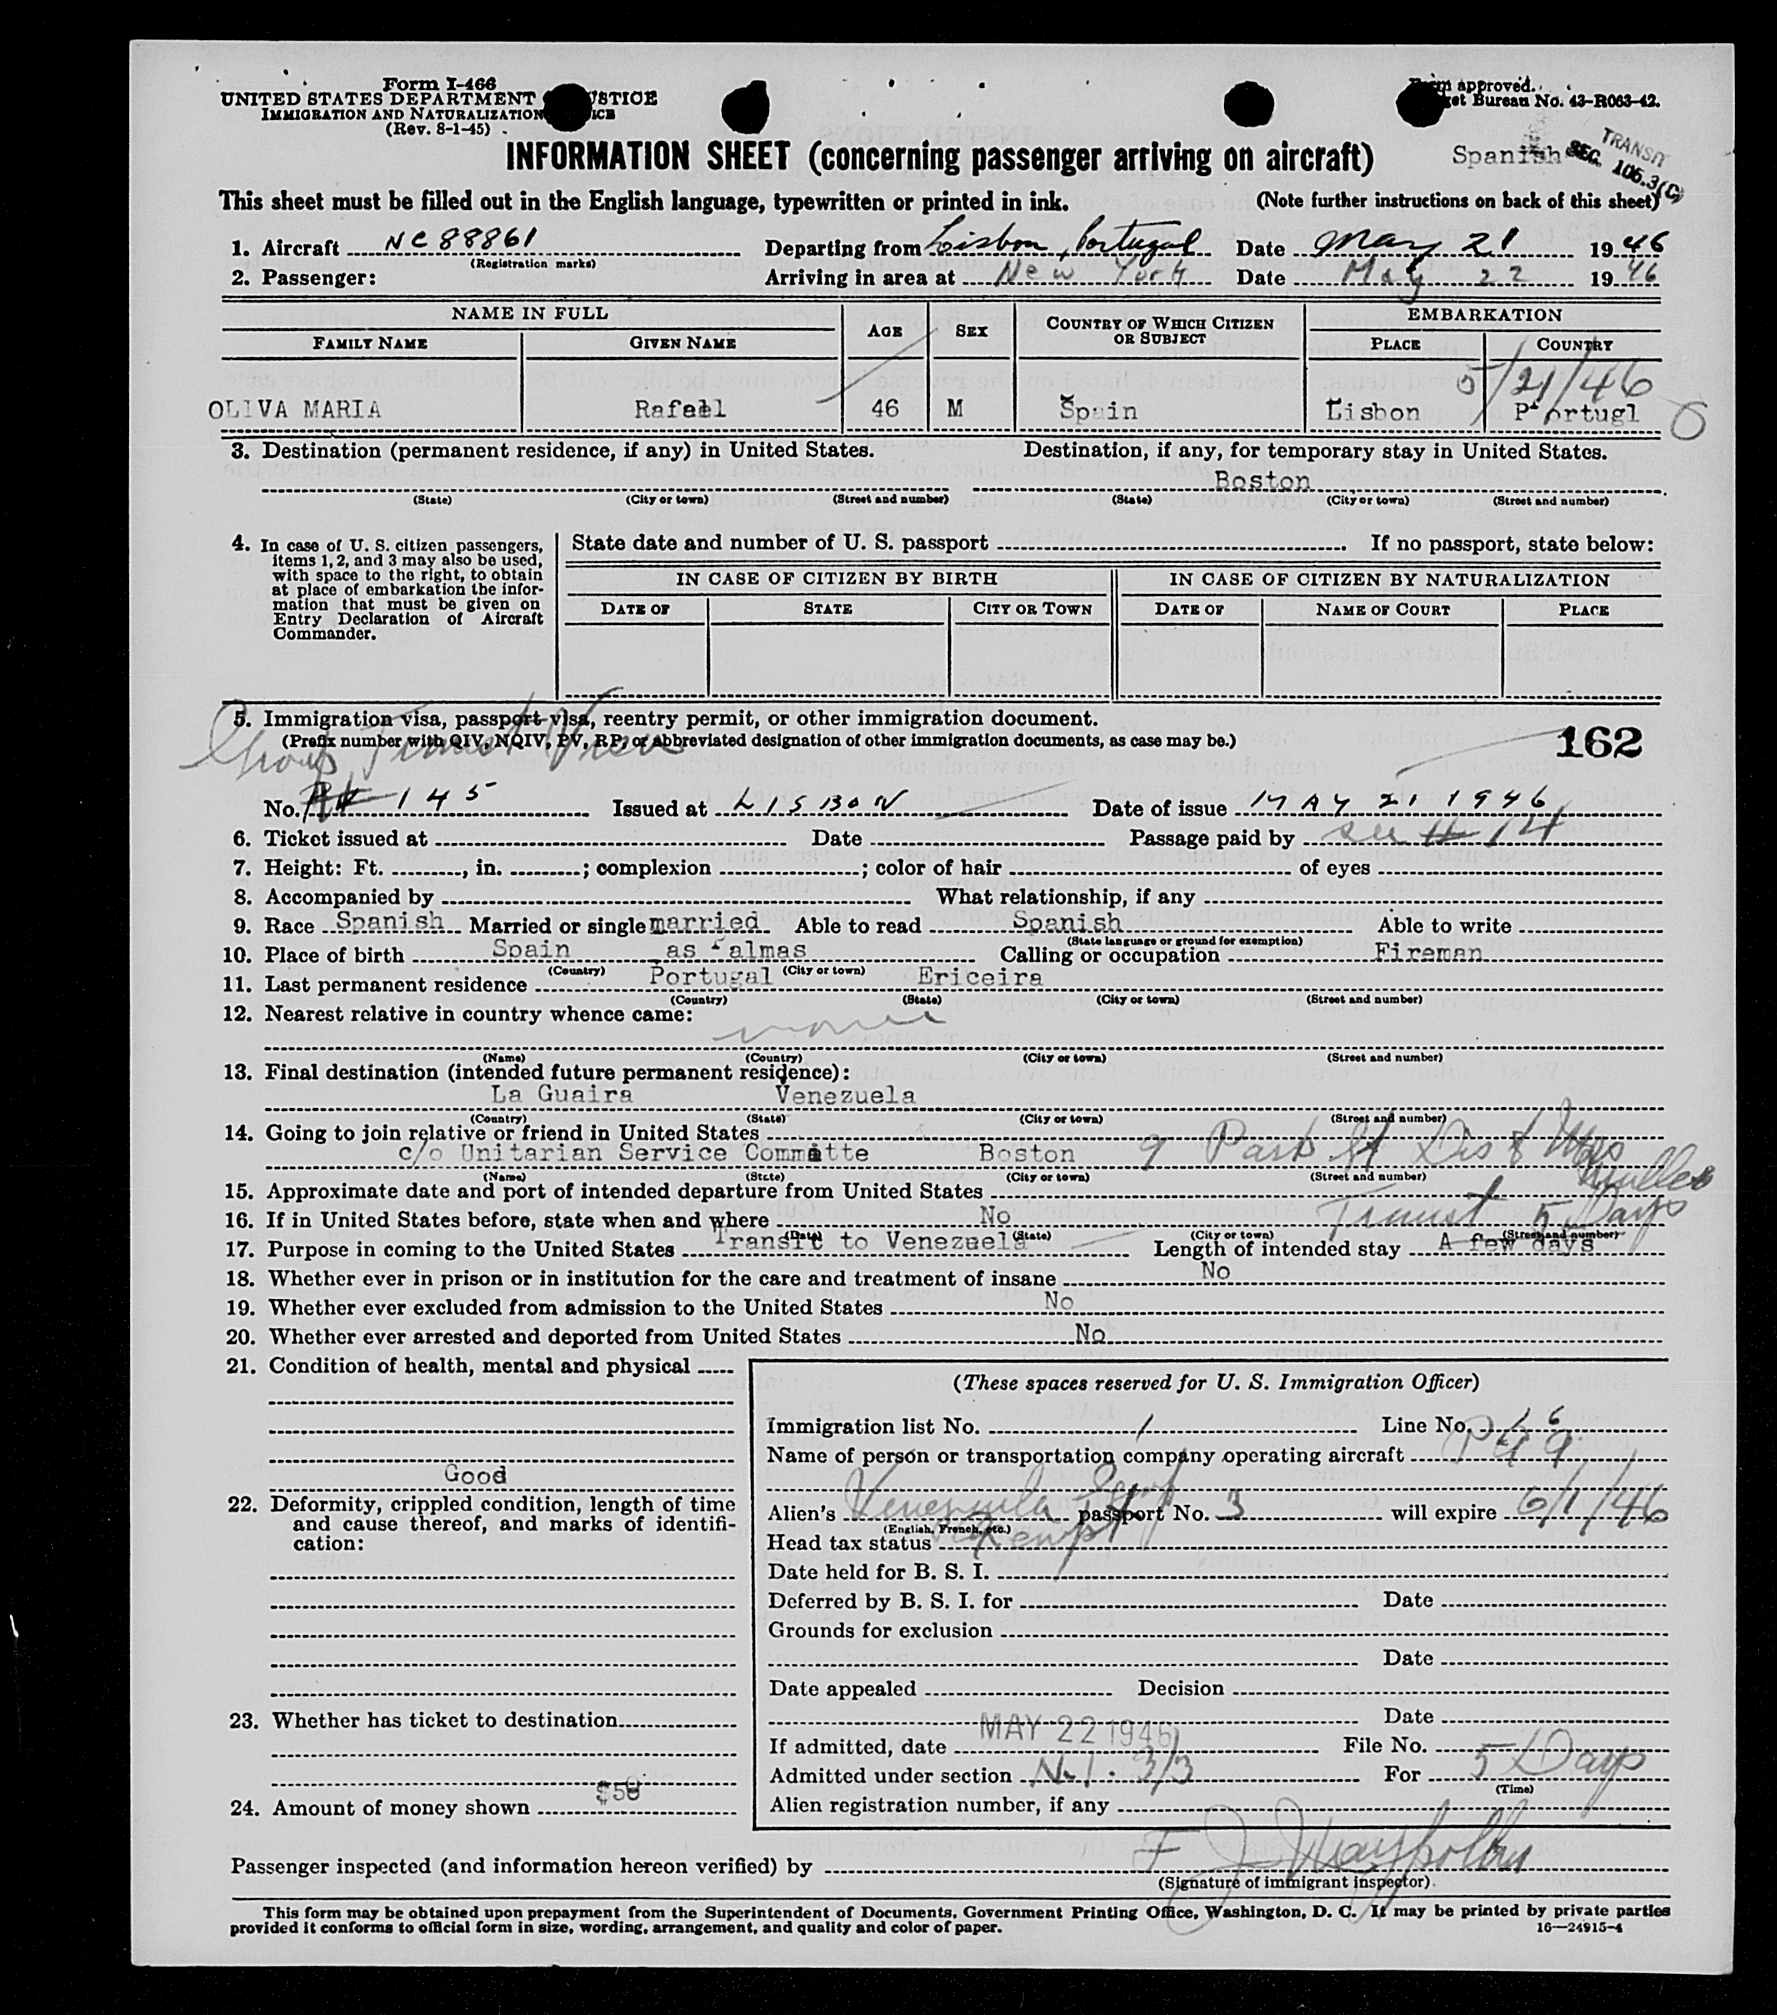 Form I-466
UNITED STATES DEPARTMENT JUSTICE
IMMIGRATION AND NATURALIZATION
(Rev. 8-1-45)
Form approved.
Bureau No. 43-R063-42.
INFORMATION SHEET (concerning passenger arriving on aircraft)
Spanish
TRANSIT
SEC. 105.3(C)
This sheet must be filled out in the English language, typewritten or printed in ink. (Note further instructions on back of this sheet)
1. Aircraft NC 88861 Departing from Lisbon, Portugal Date May 21 1946
(Registration marks)
2. Passenger: Arriving in area at New York Date May 22 1946
NAME IN FULL AGE SEX COUNTRY OF WHICH CITIZEN OR SUBJECT EMBARKATION
FAMILY NAME GIVEN NAME PLACE COUNTRY
5/21/46
OLIVA MARIA Rafael 46 M Spain Lisbon Portugl
3. Destination (permanent residence, if any) in United States. Destination, if any, for temporary stay in United States.
Boston
(State) (City or town) (Street and number) (State) (City or town) (Street and number)
4. In case of U. S. citizen passengers, items 1, 2, and 3 may also be used, with space to the right, to obtain at place of embarkation the information that must be given on Entry Declaration of Aircraft Commander.
State date and number of U. S. passport If no passport, state below:
IN CASE OF CITIZEN BY BIRTH IN CASE OF CITIZEN BY NATURALIZATION
DATE OF STATE CITY OR TOWN DATE OF NAME OF COURT PLACE
5. Immigration visa, passport visa, reentry permit, or other immigration document.
(Prefix number with QIV, NQIV, PV, RP, or abbreviated designation of other immigration documents, as case may be.)
Group Transit Visa
162
No. 145 Issued at LISBON Date of issue MAY 21 1946
6. Ticket issued at Date Passage paid by see 14
7. Height: Ft. , in. ; complexion ; color of hair of eyes
8. Accompanied by What relationship, if any
9. Race Spanish Married or single married Able to read Spanish Able to write
(State language or ground for exemption)
10. Place of birth Spain as Palmas Calling or occupation Fireman
(Country) (City or town)
11. Last permanent residence Portugal Ericeira
(Country) (State) (City or town) (Street and number)
12. Nearest relative in country whence came:
none
(Name) (Country) (City or town) (Street and number)
13. Final destination (intended future permanent residence):
La Guaira Venezuela
(Country) (State) (City or town) (Street and number)
14. Going to join relative or friend in United States
c/o Unitarian Service Committe Boston 9 Park St
(Name) (State) (City or town) (Street and number)
15. Approximate date and port of intended departure from United States
Transit 5 Days
16. If in United States before, state when and where No
(Date) (State) (City or town) (Street and number)
17. Purpose in coming to the United States Transit to Venezuela Length of intended stay A few days
18. Whether ever in prison or in institution for the care and treatment of insane No
19. Whether ever excluded from admission to the United States No
20. Whether ever arrested and deported from United States No
21. Condition of health, mental and physical
Good
22. Deformity, crippled condition, length of time
and cause thereof, and marks of identifi-
cation:
23. Whether has ticket to destination
24. Amount of money shown $50
(These spaces reserved for U. S. Immigration Officer)
Immigration list No. 1 Line No. 6
Name of person or transportation company operating aircraft
Alien's Venezuela passport No. 3 will expire 6/1/46
(English, French, etc.)
Head tax status Exempt
Date held for B. S. I.
Deferred by B. S. I. for Date
Grounds for exclusion
Date
Date appealed Decision
Date
If admitted, date MAY 22 1946 File No.
Admitted under section 3/3 For 5 Days
(Time)
Alien registration number, if any
Passenger inspected (and information hereon verified) by
(Signature of immigrant inspector)
This form may be obtained upon prepayment from the Superintendent of Documents, Government Printing Office, Washington, D. C. It may be printed by private parties
provided it conforms to official form in size, wording, arrangement, and quality and color of paper. 16—24915-4